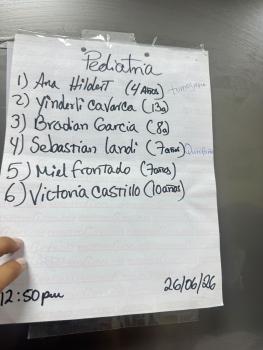 Pediatria
1) Ana Hildert (4 Años)
2) Yinderli Cavarca (13a)
3) Bradian Garcia (8a)
4) Sebastian landi (7 años)
5) Miel frontado (7 años)
6) Victoria Castillo (10 años)
12:50 pm
26/06/26